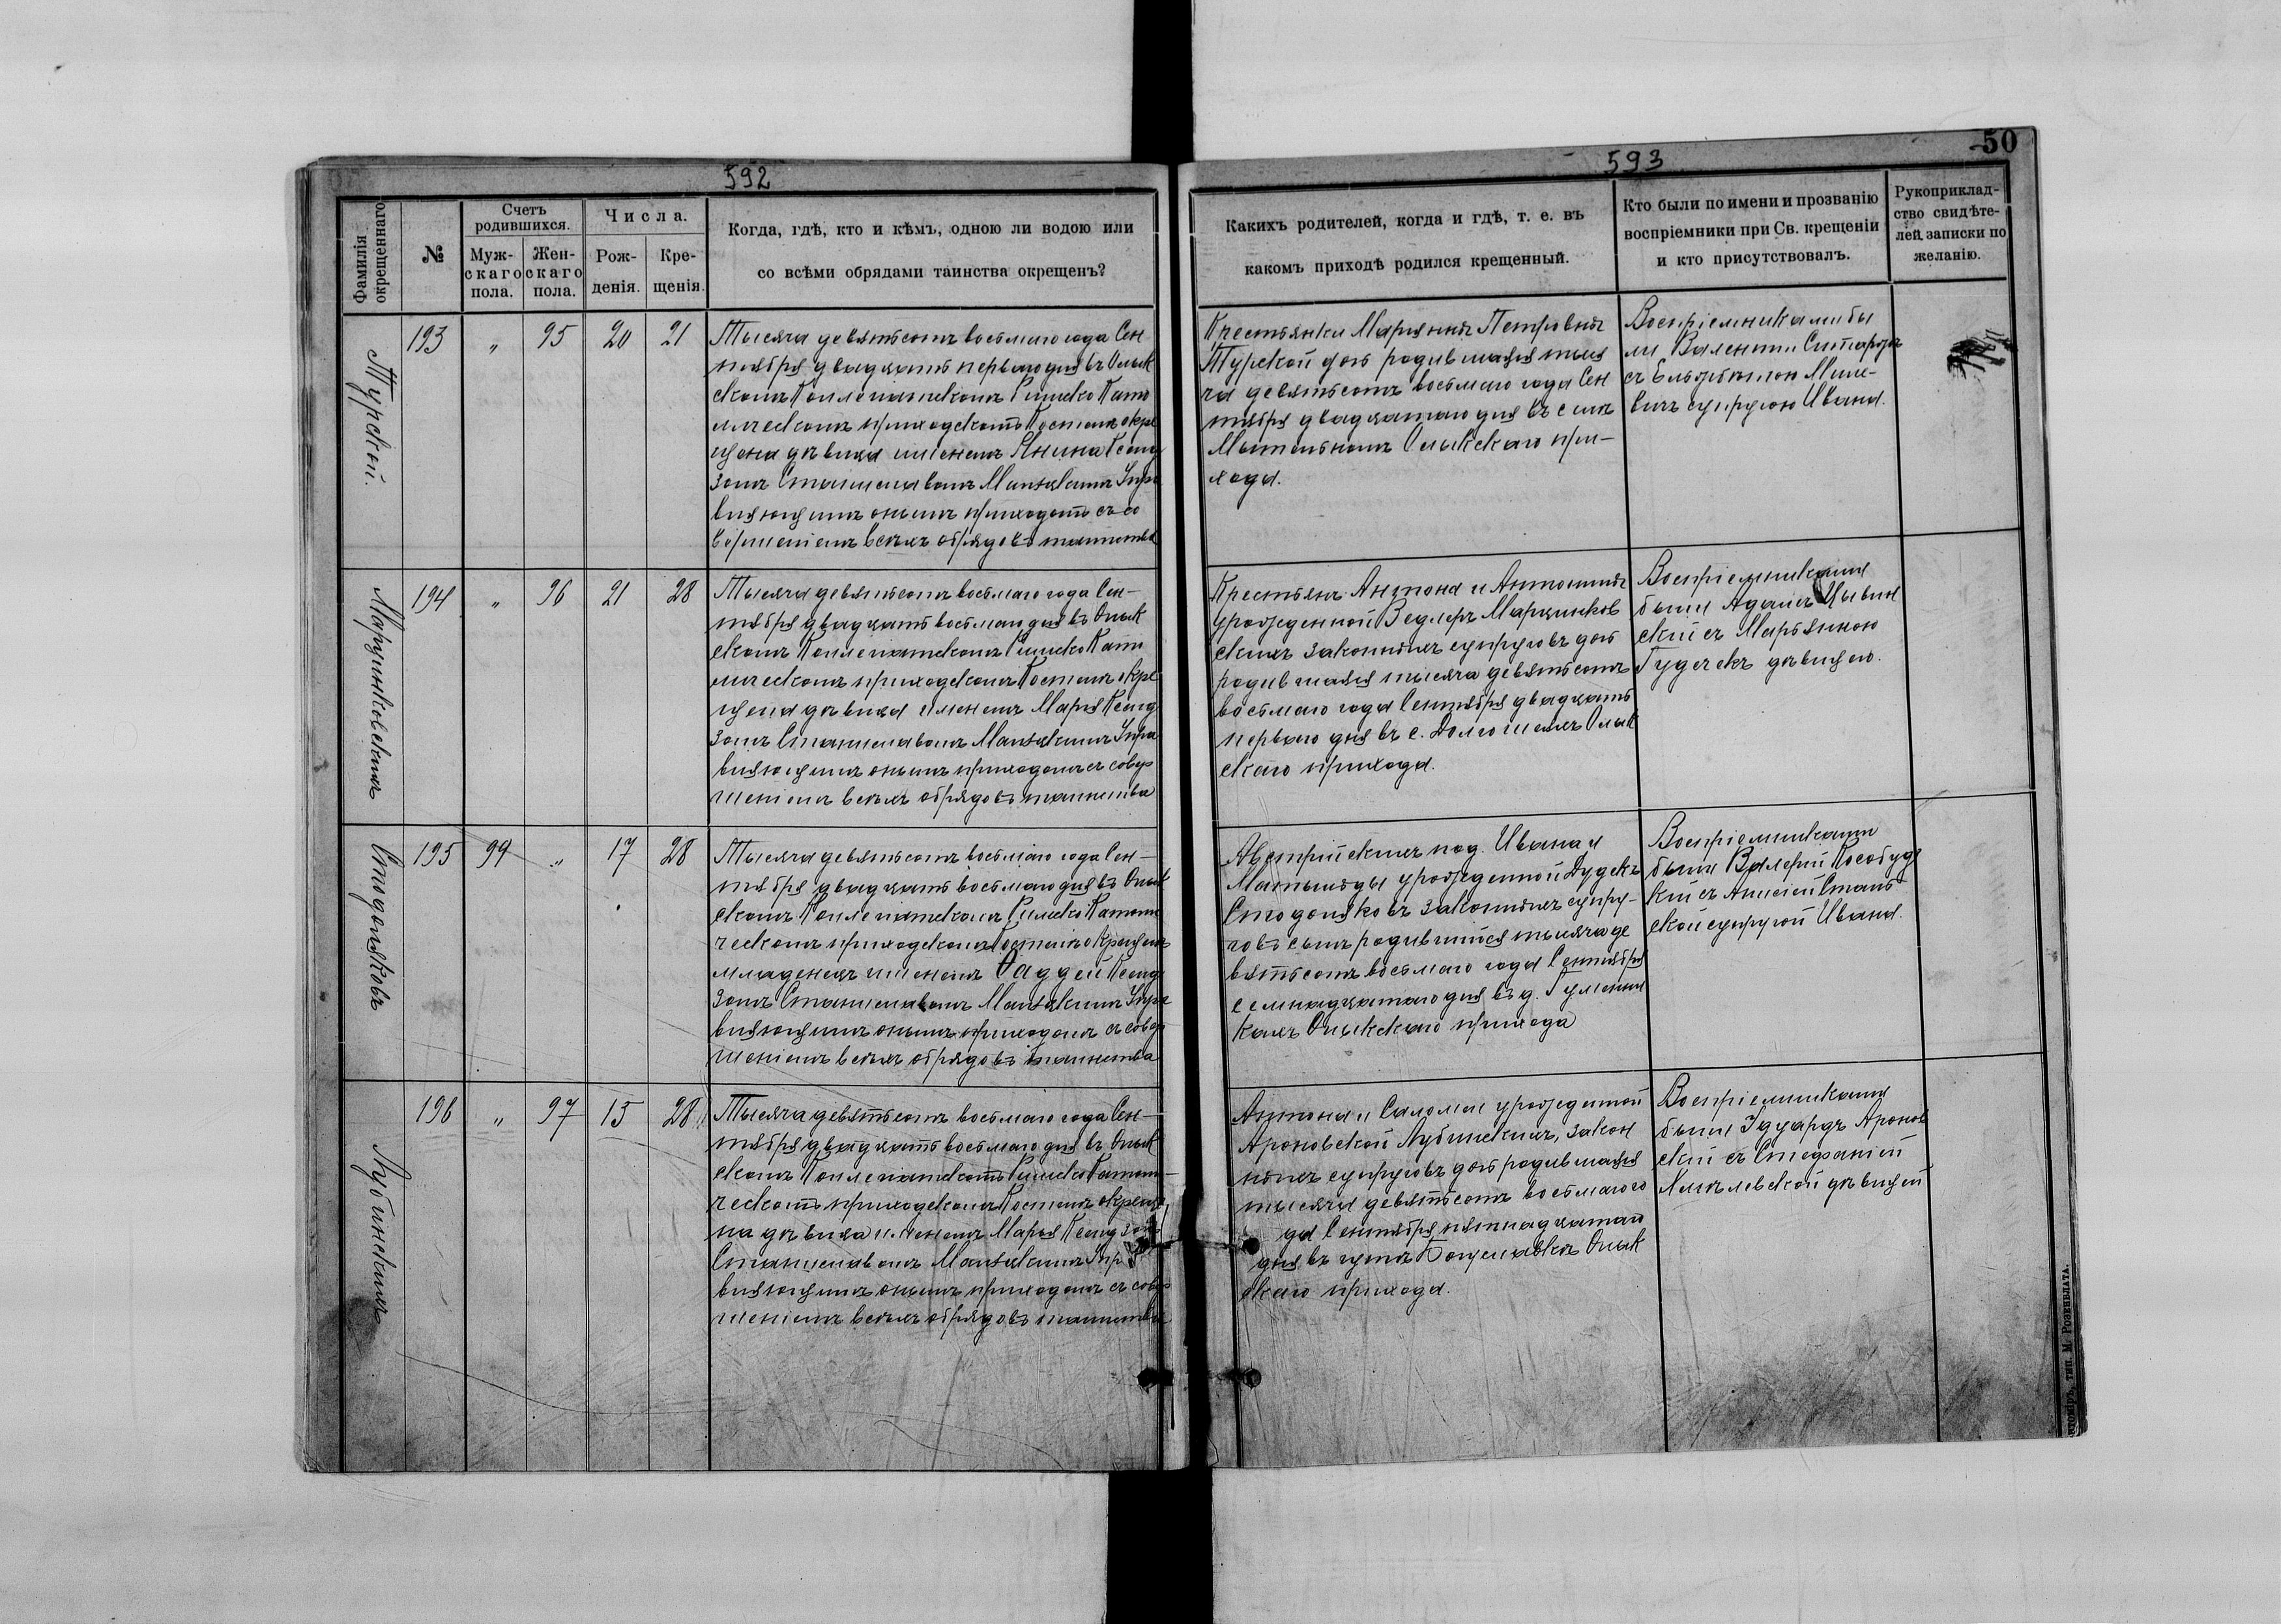 592
Фамилія окрещеннаго
№
Счетъ родившихся.
Муж-
скаго
пола.
Жен-
скаго
пола.
Числа.
Рож-
денія.
Кре-
щенія.
Когда, гдѣ, кто и кѣмъ, одною ли водою или
со всѣми обрядами таинства окрещенъ?
Турской.
193 „ 95 20 21
Тысяча девятьсотъ восьмаго года Сен
тября двадцать перваго дня въ Олык
скомъ Коллегіатскомъ Римско Като
лическомъ приходскомъ Костелѣ окре
щена дѣвица именемъ Янина Ксенд
зомъ Станиславомъ Упра
вляющимъ онымъ приходомъ съ со
вершеніемъ всѣхъ обрядовъ таинства
Марцинковскихъ
194 „ 96 21 28
Тысяча девятьсотъ восьмаго года Сен-
тября двадцать восьмаго дня въ Олык
скомъ Коллегіатскомъ Римско Като
лическомъ приходскомъ Костелѣ окре
щена дѣвица именемъ Марія Ксенд
зомъ Станиславомъ Упра
вляющимъ онымъ приходомъ съ совер
шеніемъ всѣхъ обрядовъ таинства
Стодоляковъ
195 99 „ 17 28
Тысяча девятьсотъ восьмаго года Сен-
тября двадцать восьмаго дня въ Олык
скомъ Коллегіатскомъ Римско Катол
ческомъ приходскомъ Костелѣ окрещенъ
младенецъ именемъ Фаддей Ксенд
зомъ Станиславомъ Упра
вляющимъ онымъ приходомъ съ совер
шеніемъ всѣхъ обрядовъ таинства
Лубинскихъ
196 „ 97 15 28
Тысяча девятьсотъ восьмаго года Сен-
тября двадцать восьмаго дня въ Олык
скомъ Коллегіатскомъ Римско Катол-
ческомъ приходскомъ Костелѣ окреще
на дѣвица именемъ Марья Ксендзомъ
Станиславомъ Упра
вляющимъ онымъ приходомъ съ совер
шеніемъ всѣхъ обрядовъ таинства
593
50
Какихъ родителей, когда и гдѣ, т. е. въ
какомъ приходѣ родился крещенный.
Кто были по имени и прозванію
воспріемники при Св. крещеніи
и кто присутствовалъ.
Рукоприклад-
ство свидѣте-
лей записки по
желанію.
Крестьянки Маріянны Петровны
Турской дочь родившаяся тыся
ча девятьсотъ восьмаго года Сен
тября двадцатаго дня въ селѣ
Олыкскаго при-
хода.
Воспріемниками бы
ли Валентій
съ Миле-
вичъ супругою Ивана.
Крестьянъ Антона и Антонины
урожденной Ведлеръ Марцинков
скихъ законныхъ супруговъ дочь
родившаяся тысяча девятьсотъ
восьмаго года Сентября двадцать
перваго дня въ с. Долгошеяхъ Олык
скаго прихода.
Воспріемниками
были Адамъ Цывин
скій съ Марьяною
Гудачекъ дѣвицею.
Австрійскихъ под. Ивана и
Матильды урожденной Дудекъ
Стодоляковъ законныхъ супру-
говъ сынъ родившійся тысяча де
вятьсотъ восьмаго года Сентября
семнадцатаго дня въ д.
кахъ Олыкскаго прихода
Воспріемниками
были Валерій Кособуд
скій съ Анелей
ской супругой Ивана.
Антона и Саломеи урожденной
Ароновской Лубинскихъ, закон
ныхъ супруговъ дочь родившаяся
тысяча девятьсотъ восьмаго го
да Сентября пятнадцатаго
дня въ чутѣ Богуславкѣ Олык
скаго прихода.
Воспріемниками
были Эдуардъ Аронов
скій съ Стефаніей
дѣвицей
тип. М. Розенблата.